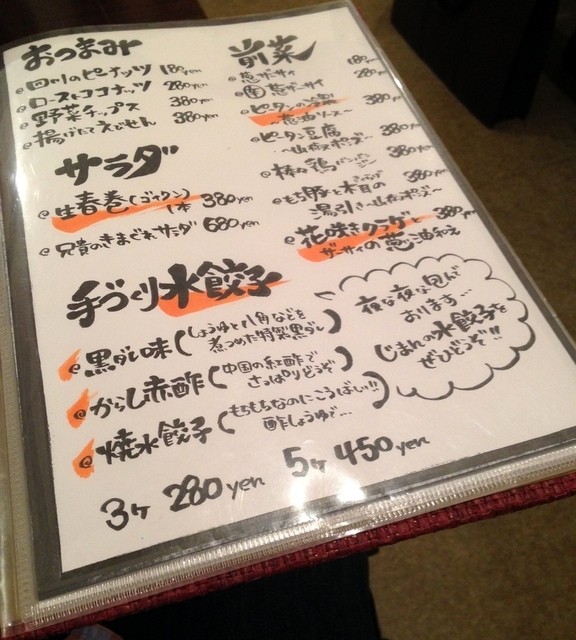 おつまみ
皮付きピーナッツ 180yen
ローストココナッツ 280yen
野菜チップス 380yen
揚げたてえびせん 380yen
サラダ
生春巻(ゴイクン) 1本 380yen
兄貴のきまぐれサラダ 680yen
前菜
葱ザーサイ 180yen
葱ザーサイ 280yen
ピータンの
～葱油ソース～ 380yen
ピータン豆腐
～山椒ポン酢～ 380yen
棒々鶏 バンバンジー 380yen
もち豚と木耳の
湯引き～山椒ポン酢～ 380yen
花咲きクラゲと
ザーサイの葱油和え 380yen
手づくり水餃子
黒ダレ味(しょうゆと八角などを
煮つめた特製黒ダレ)
からし赤酢(中国の紅酢で
さっぱりどうぞ)
焼水餃子(もちもちなのにこうばい!!
酢しょうゆで…)
3ヶ 280yen 5ヶ 450yen
夜な夜な包んで
おります…
じまんの水餃子を
ぜひどうぞ!!